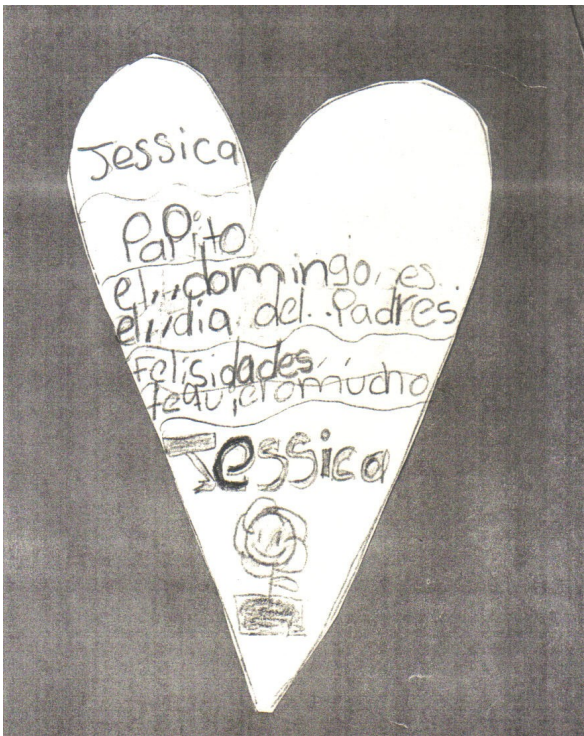 Jessica
PaPito
el,,domingo, es..
el,,dia. del..Padres
Felisidades,
tequieromucho
Jessica